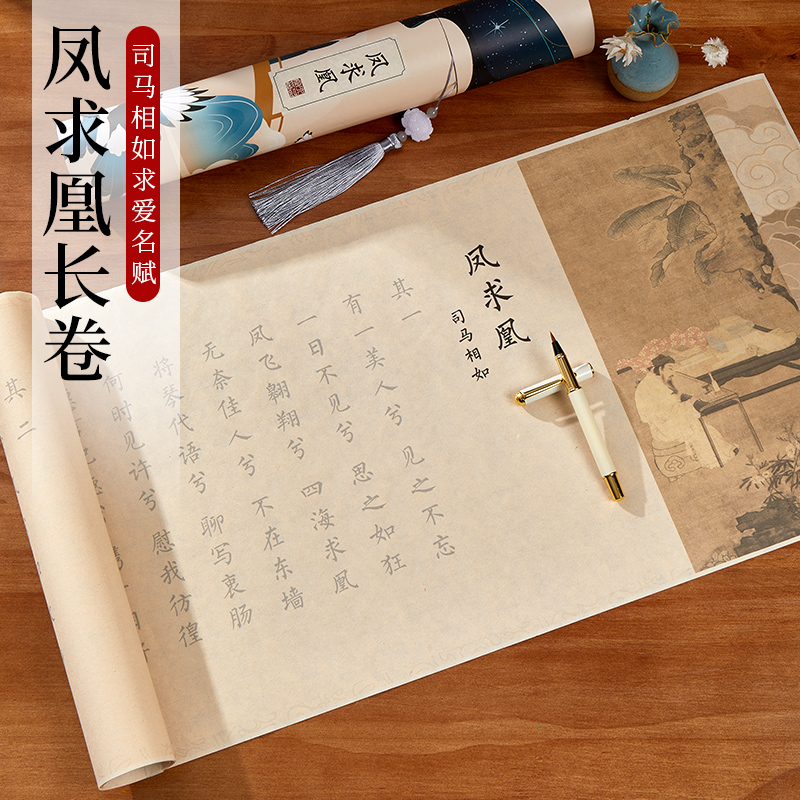 凤求凰长卷
司马相如求爱名赋
凤求凰
凤求凰
司马相如
其一
有一美人兮 见之不忘
一日不见兮 思之如狂
凤飞翱翔兮 四海求凰
无奈佳人兮 不在东墙
将琴代语兮 聊写衷肠
何时见许兮 慰我彷徨
其二